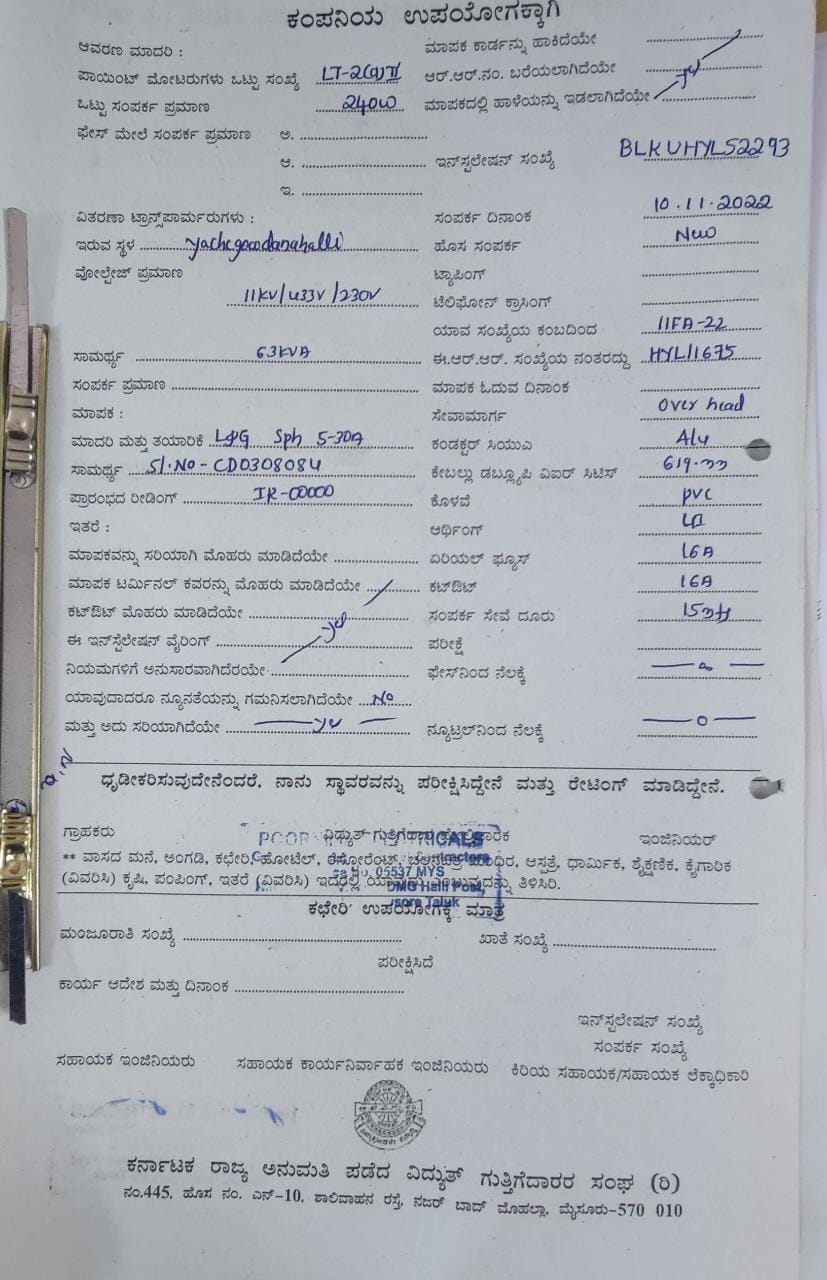 ಕಂಪನಿಯ ಉಪಯೋಗಕ್ಕಾಗಿ
ಆವರಣ ಮಾದರಿ : ಮಾಪಕ ಕಾರ್ಡನ್ನು ಹಾಕಿದೆಯೇ
ಪಾಯಿಂಟ್ ಮೋಟರುಗಳು ಒಟ್ಟು ಸಂಖ್ಯೆ LT-2(a)II ಆರ್.ಆರ್.ನಂ. ಬರೆಯಲಾಗಿದೆಯೇ
ಒಟ್ಟು ಸಂಪರ್ಕ ಪ್ರಮಾಣ 240W ಮಾಪಕದಲ್ಲಿ ಹಾಳೆಯನ್ನು ಇಡಲಾಗಿದೆಯೇ
ಫೇಸ್ ಮೇಲೆ ಸಂಪರ್ಕ ಪ್ರಮಾಣ ಅ.
ಆ. ಇನ್‌ಸ್ಟಲೇಷನ್ ಸಂಖ್ಯೆ BLKUHYL52293
ಇ.
ವಿತರಣಾ ಟ್ರಾನ್ಸ್‌ಪಾರ್ಮರುಗಳು : ಸಂಪರ್ಕ ದಿನಾಂಕ 10.11.2022
ಇರುವ ಸ್ಥಳ yachegowdanahalli ಹೊಸ ಸಂಪರ್ಕ New
ವೋಲ್ಟೇಜ್ ಪ್ರಮಾಣ ಟ್ಯಾಪಿಂಗ್
11kV/433V/230V ಟೆಲಿಫೋನ್ ಕ್ರಾಸಿಂಗ್
ಯಾವ ಸಂಖ್ಯೆಯ ಕಂಬದಿಂದ 11FA-22
ಸಾಮರ್ಥ್ಯ 63kVA ಈ.ಆರ್.ಆರ್. ಸಂಖ್ಯೆಯ ನಂತರದ್ದು HYL11675
ಸಂಪರ್ಕ ಪ್ರಮಾಣ ಮಾಪಕ ಓದುವ ದಿನಾಂಕ
ಮಾಪಕ : ಸೇವಾಮಾರ್ಗ Over head
ಮಾದರಿ ಮತ್ತು ತಯಾರಿಕೆ L&G Sph 5-30A ಕಂಡಕ್ಟರ್ ಸಿಯುಎ Alu
ಸಾಮರ್ಥ್ಯ Sl.No - CD0308084 ಕೇಬಲ್ಲು ಡಬ್ಲ್ಯೂಪಿ ವಿಐರ್ ಸಿಟಿಸ್
ಪ್ರಾರಂಭದ ರೀಡಿಂಗ್ IR-00000 ಕೊಳವೆ PVC
ಇತರೆ : ಆರ್ಥಿಂಗ್
ಮಾಪಕವನ್ನು ಸರಿಯಾಗಿ ಮೊಹರು ಮಾಡಿದೆಯೇ ಏರಿಯಲ್ ಫ್ಯೂಸ್ 16A
ಮಾಪಕ ಟರ್ಮಿನಲ್ ಕವರನ್ನು ಮೊಹರು ಮಾಡಿದೆಯೇ ಕಟ್‌ಔಟ್ 16A
ಕಟ್‌ಔಟ್ ಮೊಹರು ಮಾಡಿದೆಯೇ ಸಂಪರ್ಕ ಸೇವೆ ದೂರು
ಈ ಇನ್‌ಸ್ಟೆಲೇಷನ್ ವೈರಿಂಗ್ ಪರೀಕ್ಷೆ
ನಿಯಮಗಳಿಗೆ ಅನುಸಾರವಾಗಿದೆರಯೇ ಫೇಸ್‌ನಿಂದ ನೆಲಕ್ಕೆ
ಯಾವುದಾದರೂ ನ್ಯೂನತೆಯನ್ನು ಗಮನಿಸಲಾಗಿದೆಯೇ No
ಮತ್ತು ಅದು ಸರಿಯಾಗಿದೆಯೇ ನ್ಯೂಟ್ರಲ್‌ನಿಂದ ನೆಲಕ್ಕೆ
ಧೃಡೀಕರಿಸುವುದೇನೆಂದರೆ, ನಾನು ಸ್ಥಾವರವನ್ನು ಪರೀಕ್ಷಿಸಿದ್ದೇನೆ ಮತ್ತು ರೇಟಿಂಗ್ ಮಾಡಿದ್ದೇನೆ.
ಗ್ರಾಹಕರು ವಿದ್ಯುತ್ ಇಂಜಿನಿಯರ್
** ವಾಸದ ಮನೆ, ಅಂಗಡಿ, ಕಛೇರಿ, ಹೋಟೆಲ್, ರೆಸ್ಟೋರೆಂಟ್, ಆಸ್ಪತ್ರೆ, ಧಾರ್ಮಿಕ, ಶೈಕ್ಷಣಿಕ, ಕೈಗಾರಿಕೆ
(ವಿವರಿಸಿ) ಕೃಷಿ, ಪಂಪಿಂಗ್, ಇತರೆ (ವಿವರಿಸಿ) ಇದರಲ್ಲಿ ತಿಳಿಸಿರಿ.
05537 MYS
ಕಛೇರಿ ಉಪಯೋಗಕ್ಕೆ ಮಾತ್ರ
ಮಂಜೂರಾತಿ ಸಂಖ್ಯೆ ಖಾತೆ ಸಂಖ್ಯೆ
ಪರೀಕ್ಷಿಸಿದೆ
ಕಾರ್ಯ ಆದೇಶ ಮತ್ತು ದಿನಾಂಕ
ಇನ್‌ಸ್ಟಲೇಷನ್ ಸಂಖ್ಯೆ
ಸಂಪರ್ಕ ಸಂಖ್ಯೆ
ಸಹಾಯಕ ಇಂಜಿನಿಯರು ಸಹಾಯಕ ಕಾರ್ಯನಿರ್ವಾಹಕ ಇಂಜಿನಿಯರು ಕಿರಿಯ ಸಹಾಯಕ/ಸಹಾಯಕ ಲೆಕ್ಕಾಧಿಕಾರಿ
ಕರ್ನಾಟಕ ರಾಜ್ಯ ಅನುಮತಿ ಪಡೆದ ವಿದ್ಯುತ್ ಗುತ್ತಿಗೆದಾರರ ಸಂಘ (ರಿ)
ನಂ.445, ಹೊಸ ನಂ. ಎನ್-10, ಶಾಲಿವಾಹನ ರಸ್ತೆ, ನಜರ್ ಬಾದ್ ಮೊಹಲ್ಲಾ, ಮೈಸೂರು-570 010